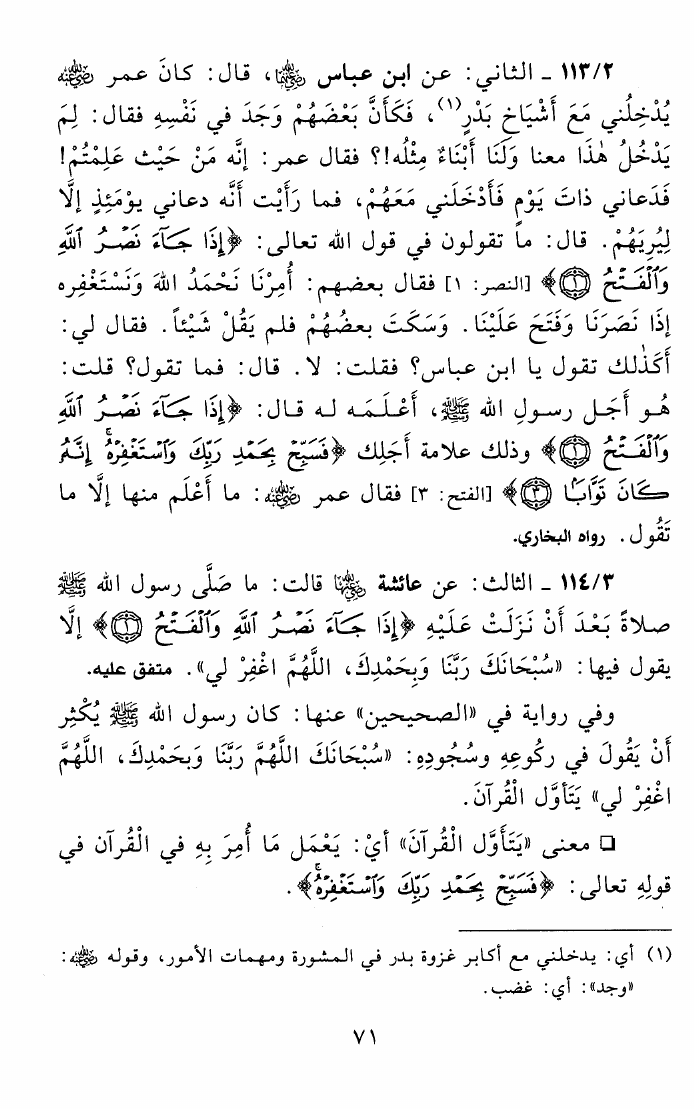 ١١٣/٢ ـ الثاني: عن ابن عباس رضي الله عنهما، قال: كانَ عمر رضي الله عنه
يُدْخِلُني مَعَ أَشْيَاخِ بَدْرٍ(١)، فَكَأَنَّ بَعْضَهُمْ وَجَدَ في نَفْسِهِ فقال: لِمَ
يَدْخُلُ هٰذا معنا ولَنَا أَبْنَاءٌ مِثْلُه!؟ فقال عمر: إنَّه مَنْ حَيْث عَلِمْتُمْ!
فَدَعاني ذاتَ يَوْمٍ فَأَدْخَلَني مَعَهُمْ، فما رَأَيْت أنَّه دعاني يوْمَئِذٍ إلَّا
لِيُرِيَهُمْ. قال: ما تقولون في قول الله تعالى: ﴿إِذَا جَآءَ نَصْرُ ٱللَّهِ
وَٱلْفَتْحُ ۝١﴾ [النصر: ١] فقال بعضهم: أُمِرْنَا نَحْمَدُ اللهَ وَنَسْتَغْفِره
إذَا نَصَرَنَا وَفَتَحَ عَلَيْنَا. وَسَكَتَ بعضُهُمْ فلم يَقُلْ شَيْئاً. فقال لي:
أَكَذٰلك تقول يا ابن عباس؟ فقلت: لا. قال: فما تقول؟ قلت:
هُو أَجَل رسولِ الله ﷺ، أَعْلَمَه له قال: ﴿إِذَا جَآءَ نَصْرُ ٱللَّهِ
وَٱلْفَتْحُ ۝١﴾ وذلك علامة أَجَلِك ﴿فَسَبِّحْ بِحَمْدِ رَبِّكَ وَٱسْتَغْفِرْهُۚ إِنَّهُۥ
كَانَ تَوَّابًۢا ۝٣﴾ [الفتح: ٣] فقال عمر رضي الله عنه: ما أَعْلَم منها إلَّا ما
تَقُول. رواه البخاري.
١١٤/٣ ـ الثالث: عن عائشة رضي الله عنها قالت: ما صَلَّى رسول الله ﷺ
صلاةً بَعْدَ أَنْ نَزَلَتْ عَلَيْهِ ﴿إِذَا جَآءَ نَصْرُ ٱللَّهِ وَٱلْفَتْحُ ۝١﴾ إلَّا
يقول فيها: «سُبْحَانَكَ رَبَّنَا وَبِحَمْدِكَ، اللَّهُمَّ اغْفِرْ لي». متفق عليه.
وفي رواية في «الصحيحين» عنها: كان رسول الله ﷺ يُكْثِر
أَنْ يَقُولَ في ركُوعِهِ وسُجُودِهِ: «سُبْحَانَكَ اللَّهُمَّ رَبَّنَا وَبِحَمْدِكَ، اللَّهُمَّ
اغْفِرْ لي» يَتَأوَّل الْقُرآنَ.
❑ معنى «يَتَأَوَّل الْقُرآنَ» أيْ: يَعْمَل مَا أُمِرَ بِهِ في الْقُرآن في
قولِهِ تعالى: ﴿فَسَبِّحْ بِحَمْدِ رَبِّكَ وَٱسْتَغْفِرْهُۚ﴾.
(١) أي: يدخلني مع أكابر غزوة بدر في المشورة ومهمات الأمور، وقوله رضي الله عنه:
«وجد»: أي: غضب.
٧١